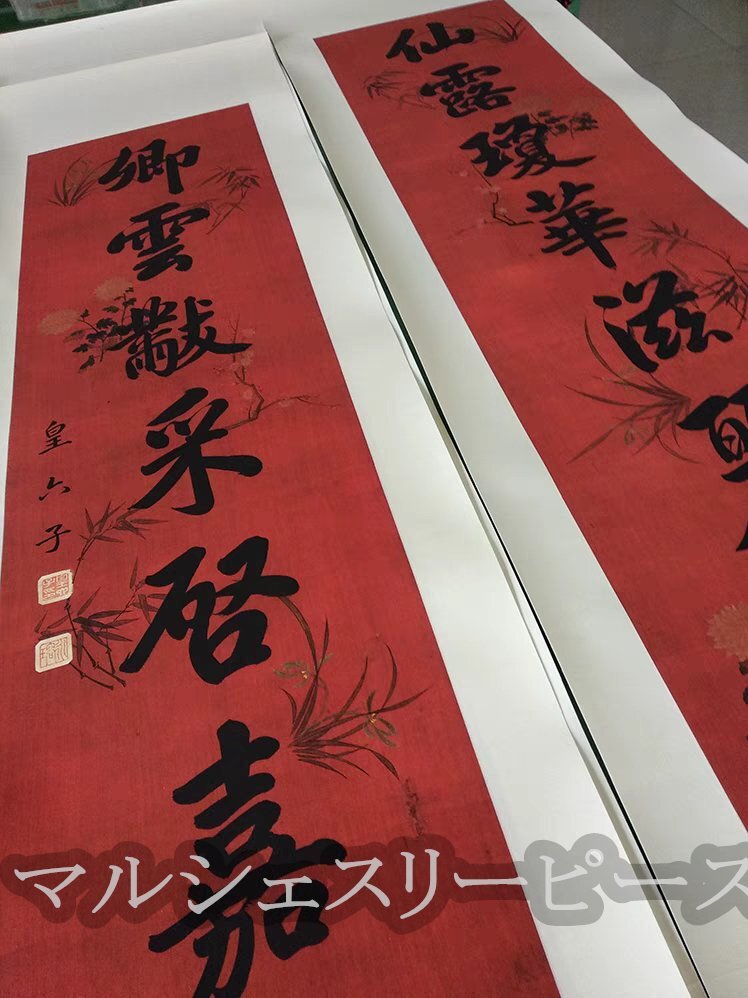 仙露瓊華滋
卿雲黻采啓嘉
皇六子
マルシェスリーピース